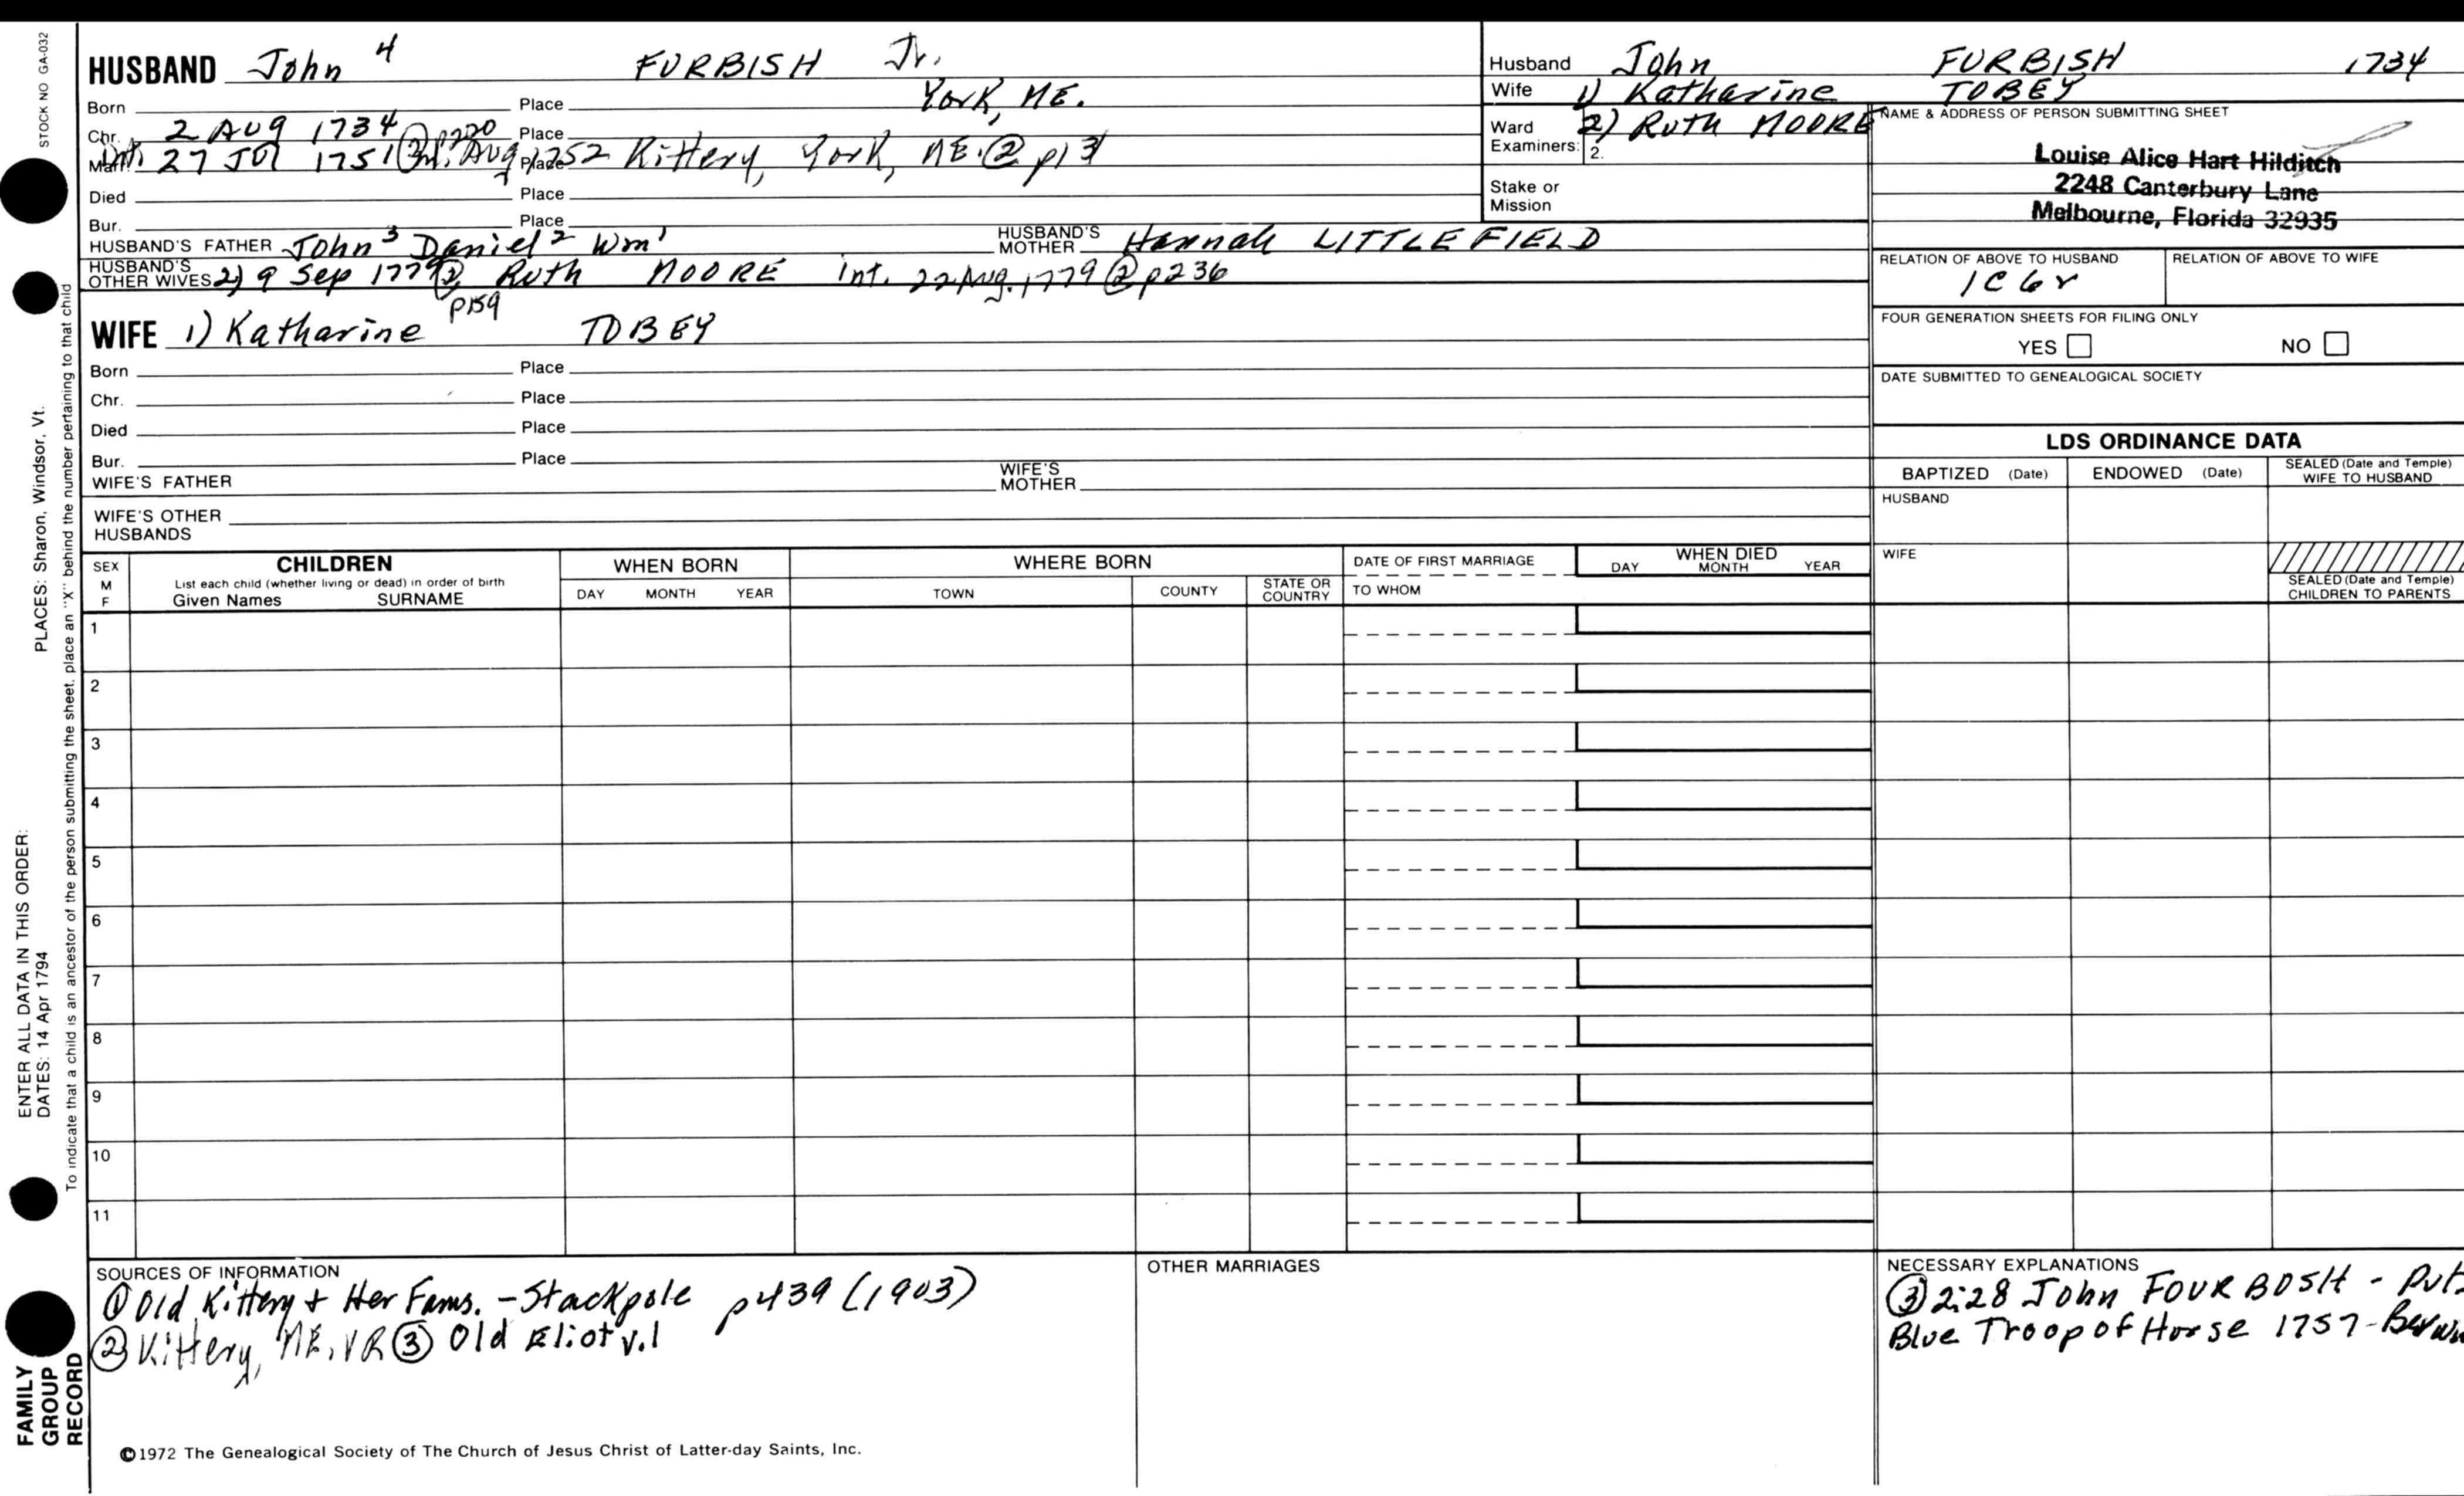 STOCK NO GA-032
PLACES: Sharon, Windsor, Vt.
ENTER ALL DATA IN THIS ORDER:
DATES: 14 Apr 1794
To indicate that a child is an ancestor of the person submitting the sheet, place an "X" behind the number pertaining to that child
FAMILY
GROUP
RECORD
HUSBAND John 4 FURBISH Jr.
Born Place York, ME.
Chr. 2 AUG 1734 ② p220 Place
Marr. Int. 27 JUL 1751 Aug 1752 Place Kittery, York, ME. ② p13
Died Place
Bur. Place
HUSBAND'S FATHER John 3 Daniel 2 Wm 1 HUSBAND'S MOTHER Hannah LITTLEFIELD
HUSBAND'S OTHER WIVES 2) 9 Sep 1779 ② Ruth MOORE int. 22 Aug. 1779 ② p236
p159
WIFE 1) Katharine TOBEY
Born Place
Chr. Place
Died Place
Bur. Place
WIFE'S FATHER WIFE'S MOTHER
WIFE'S OTHER HUSBANDS
Husband John FURBISH 1734
Wife 1) Katharine TOBEY
Ward 2) RUTH MOORE
Examiners: 2.
Stake or
Mission
NAME & ADDRESS OF PERSON SUBMITTING SHEET
Louise Alice Hart Hilditch
2248 Canterbury Lane
Melbourne, Florida 32935
RELATION OF ABOVE TO HUSBAND RELATION OF ABOVE TO WIFE
1C6r
FOUR GENERATION SHEETS FOR FILING ONLY
YES NO
DATE SUBMITTED TO GENEALOGICAL SOCIETY
LDS ORDINANCE DATA
BAPTIZED (Date) ENDOWED (Date) SEALED (Date and Temple) WIFE TO HUSBAND
HUSBAND
WIFE
SEALED (Date and Temple)
CHILDREN TO PARENTS
SEX
M
F
CHILDREN
List each child (whether living or dead) in order of birth
Given Names SURNAME
WHEN BORN
DAY MONTH YEAR
WHERE BORN
TOWN COUNTY STATE OR COUNTRY
DATE OF FIRST MARRIAGE
TO WHOM
WHEN DIED
DAY MONTH YEAR
1
2
3
4
5
6
7
8
9
10
11
SOURCES OF INFORMATION
① Old Kittery + Her Fams. - Stackpole p439 (1903)
② Kittery, ME. VR ③ Old Eliot v.1
OTHER MARRIAGES
NECESSARY EXPLANATIONS
③ 2:28 John FOURBOSH - Pvt.
Blue Troop of Horse 1757-
©1972 The Genealogical Society of The Church of Jesus Christ of Latter-day Saints, Inc.